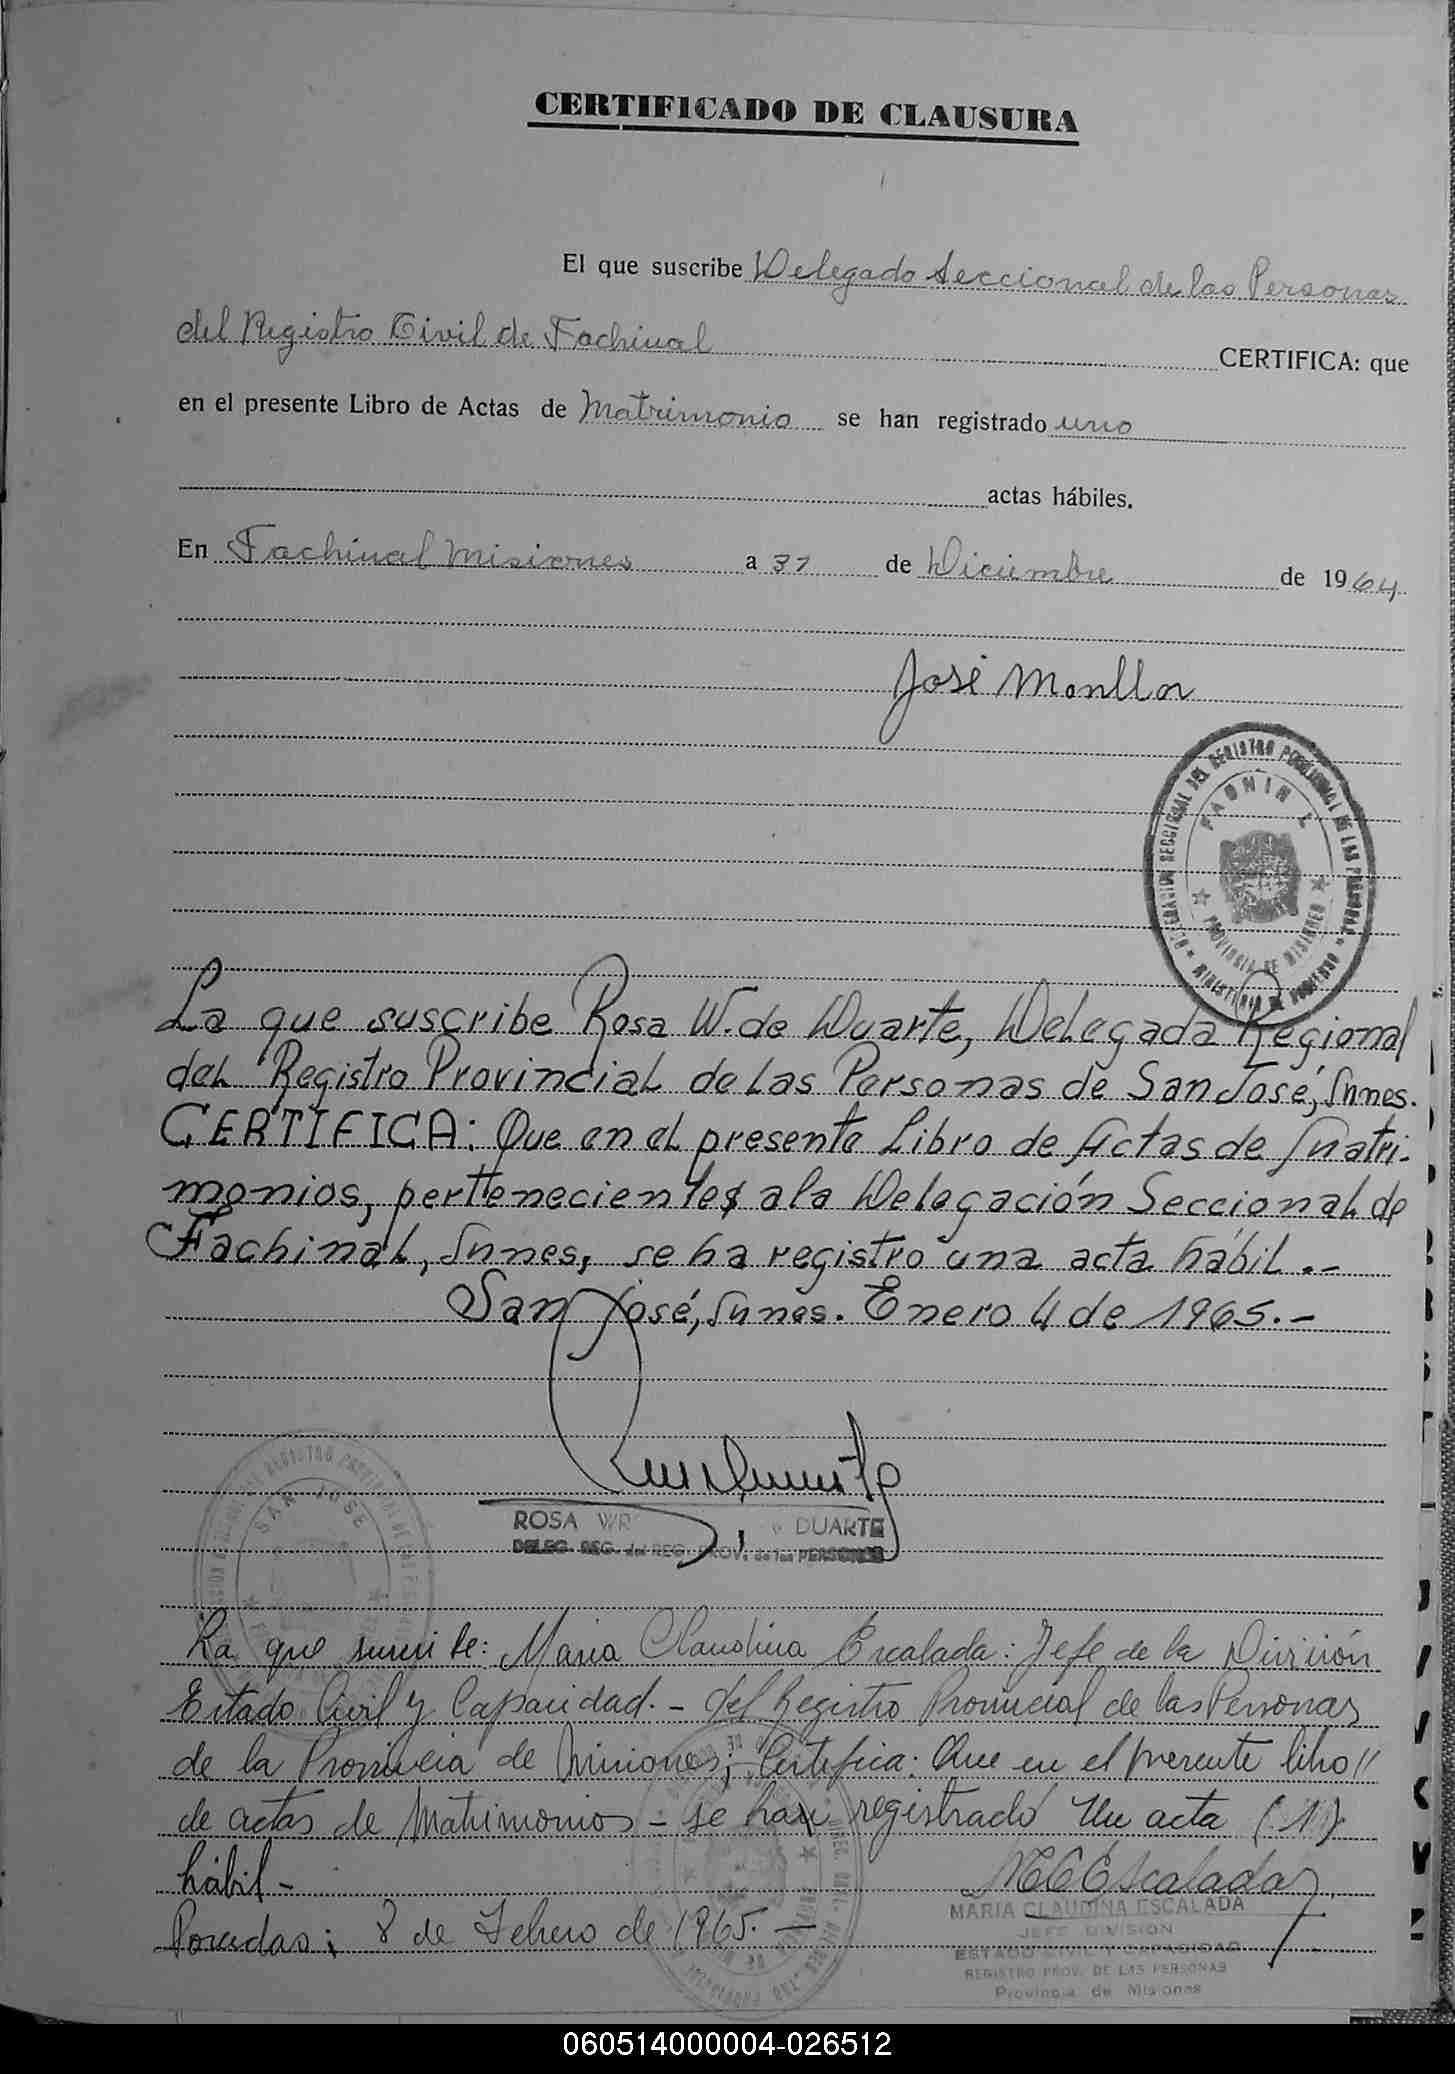 CERTIFICADO DE CLAUSURA
El que suscribe Delegado Seccional de las Personas
del Registro Civil de Fachinal CERTIFICA: que
en el presente Libro de Actas de Matrimonio se han registrado uno
actas hábiles.
En Fachinal Misiones a 31 de Diciembre de 1964
José Monllor
DELEGACION SECCIONAL DEL REGISTRO PROVINCIAL DE LAS PERSONAS
FACHINAL
PROVINCIA DE MISIONES
MINISTERIO DE GOBIERNO
La que suscribe Rosa W. de Duarte, Delegada Regional
del Registro Provincial de las Personas de San José, Mnes.
CERTIFICA: Que en el presente Libro de Actas de Matri-
monios, pertenecientes a la Delegación Seccional de
Fachinal, Mnes, se ha registro una acta hábil.--
San José, Mnes. Enero 4 de 1965.-
ROSA DUARTE
DELEG. REG. del REG. PROV. de las PERSONAS
SAN JOSE
La que suscribe: Maria Claudina Escalada: Jefe de la División
Estado Civil y Capacidad.- del Registro Provincial de las Personas
de la Provincia de Misiones; Certifica: Que en el presente libro //
de actas de Matrimonios - se han registrado Un acta (1)
hábil -
MCEscalada
Posadas; 8 de Febrero de 1965.-
MARIA CLAUDINA ESCALADA
JEFE DIVISION
ESTADO CIVIL Y CAPACIDAD
REGISTRO PROV. DE LAS PERSONAS
Provincia de Misiones
060514000004-026512